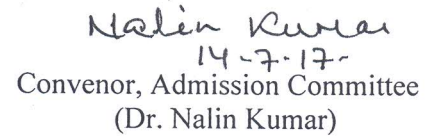 Nalin Kumar
14-7-17-
Convenor, Admission Committee
(Dr. Nalin Kumar)